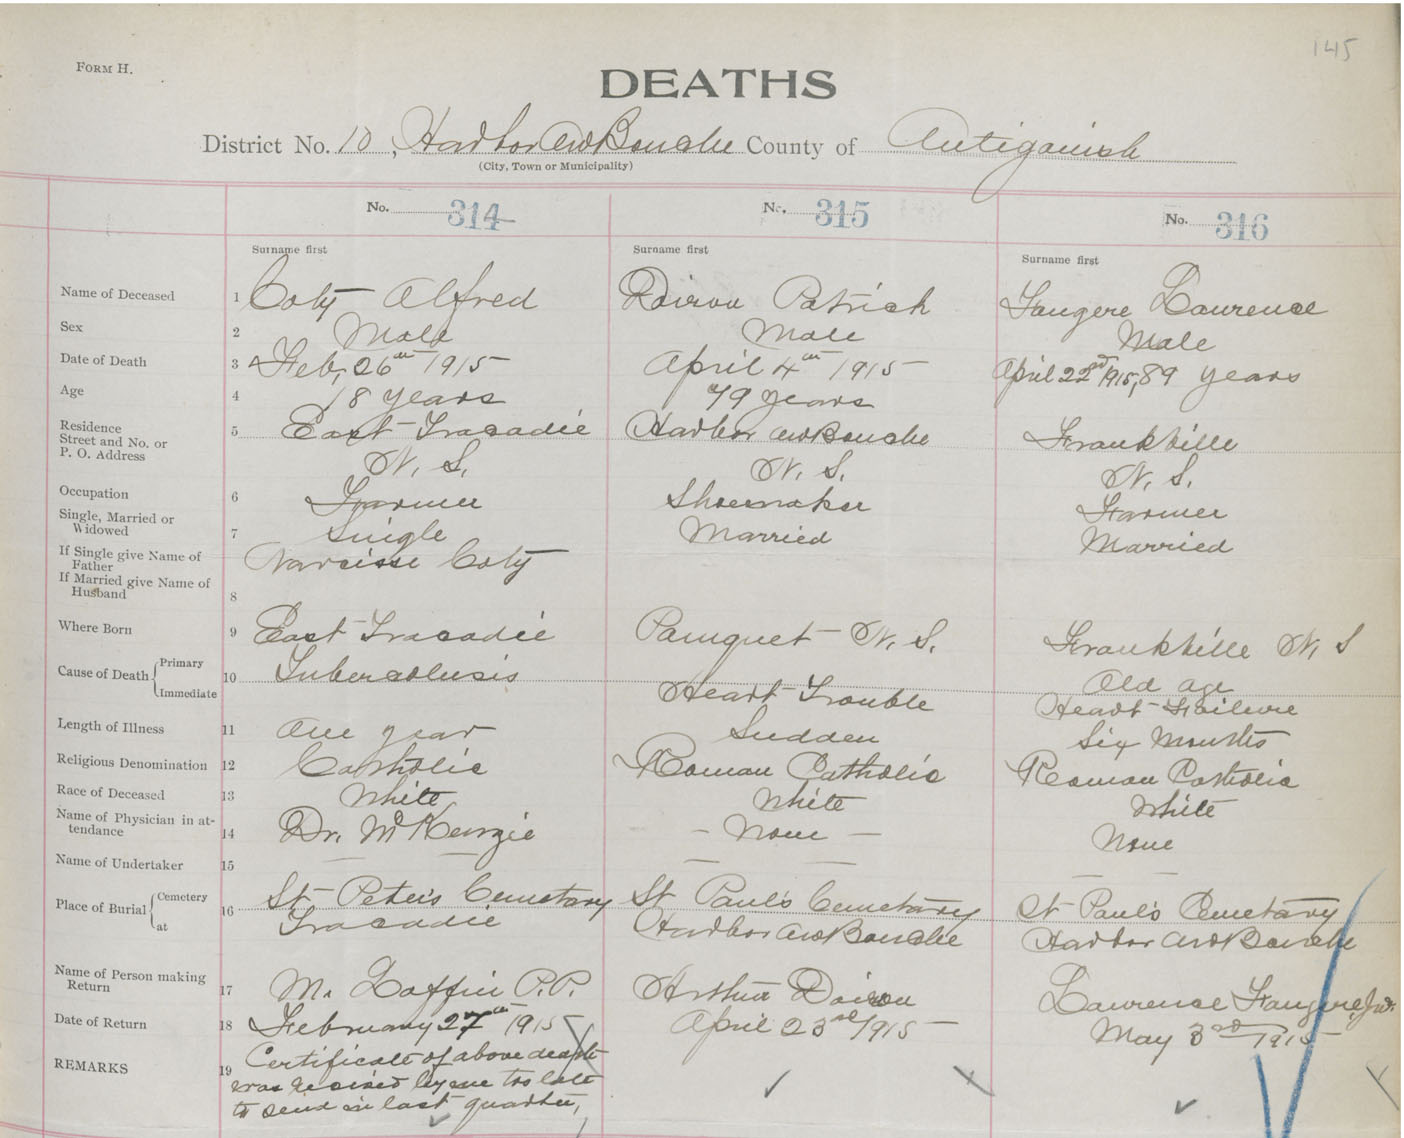 145
FORM H.
DEATHS
District No. 10, Harbor au Bouche County of Antigonish
(City, Town or Municipality)
No. 314
No. 315
No. 316
Surname first
Surname first
Surname first
Name of Deceased 1 Coty Alfred
Doiron Patrick
Fougere Laurence
Sex 2 Male
Male
Male
Date of Death 3 Feb, 26th 1915
April 4th 1915
April 22nd 1915, 89 years
Age 4 18 years
79 years
Residence
Street and No. or
P. O. Address
5 East Tracadie
N. S.
Harbor au Bouche
N. S.
Frankville
N. S.
Occupation 6 Farmer
Shoemaker
Farmer
Single, Married or
Widowed
7 Single
Married
Married
If Single give Name of
Father
Narcisse Coty
If Married give Name of
Husband
8
Where Born 9 East Tracadie
Pomquet N. S.
Frankville N. S
Cause of Death { Primary
Immediate
10 Tuberculosis
Heart Trouble
Old age
Heart Failure
Length of Illness 11 One year
Sudden
Six Months
Religious Denomination 12 Catholic
Roman Catholic
Roman Catholic
Race of Deceased 13 White
White
White
Name of Physician in at-
tendance
14 Dr. McKenzie
— None —
None
Name of Undertaker 15 — —
— —
— —
Place of Burial { Cemetery
at
16 St Peter's Cemetary
Tracadie
St Paul's Cemetary
Harbor au Bouche
St Paul's Cemetary
Harbor au Bouche
Name of Person making
Return
17 M. Laffin P.P.
Arthur Doiron
Laurence Fougere, Jnr.
Date of Return 18 February 27th 1915
April 23rd 1915
May 3rd 1915
REMARKS 19 Certificate of above death
was received by me too late
to send in last quarter,